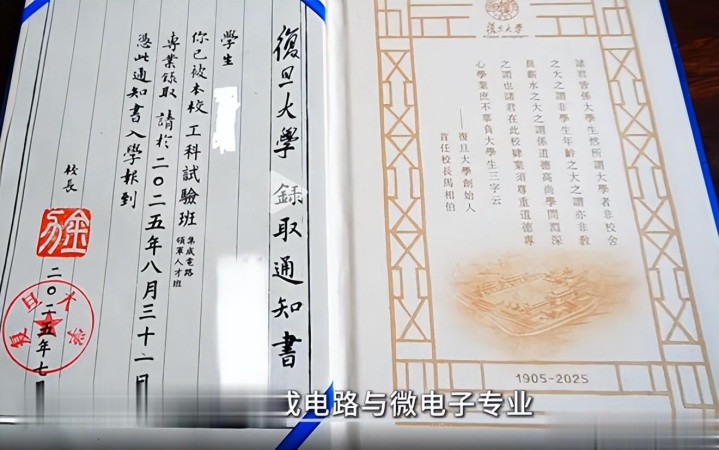 復旦大學 錄取通知書
學生
你已被本校工科試驗班
集成電路
領軍人才班
專業錄取 請於二〇二五年八月三十一日
憑此通知書入學報到
校長
二〇二五年七
復旦大學
復旦大學
諸君皆係大學生然所謂大學者非校舍
之大之謂非學生年齡之大之謂亦非教
員薪水之大之謂係道德高尚學問淵深
之謂也諸君在此校肄業須尊重道德專
心學業庶不辜負大學生三字云
——復旦大學創始人
首任校長馬相伯
1905-2025
成电路与微电子专业